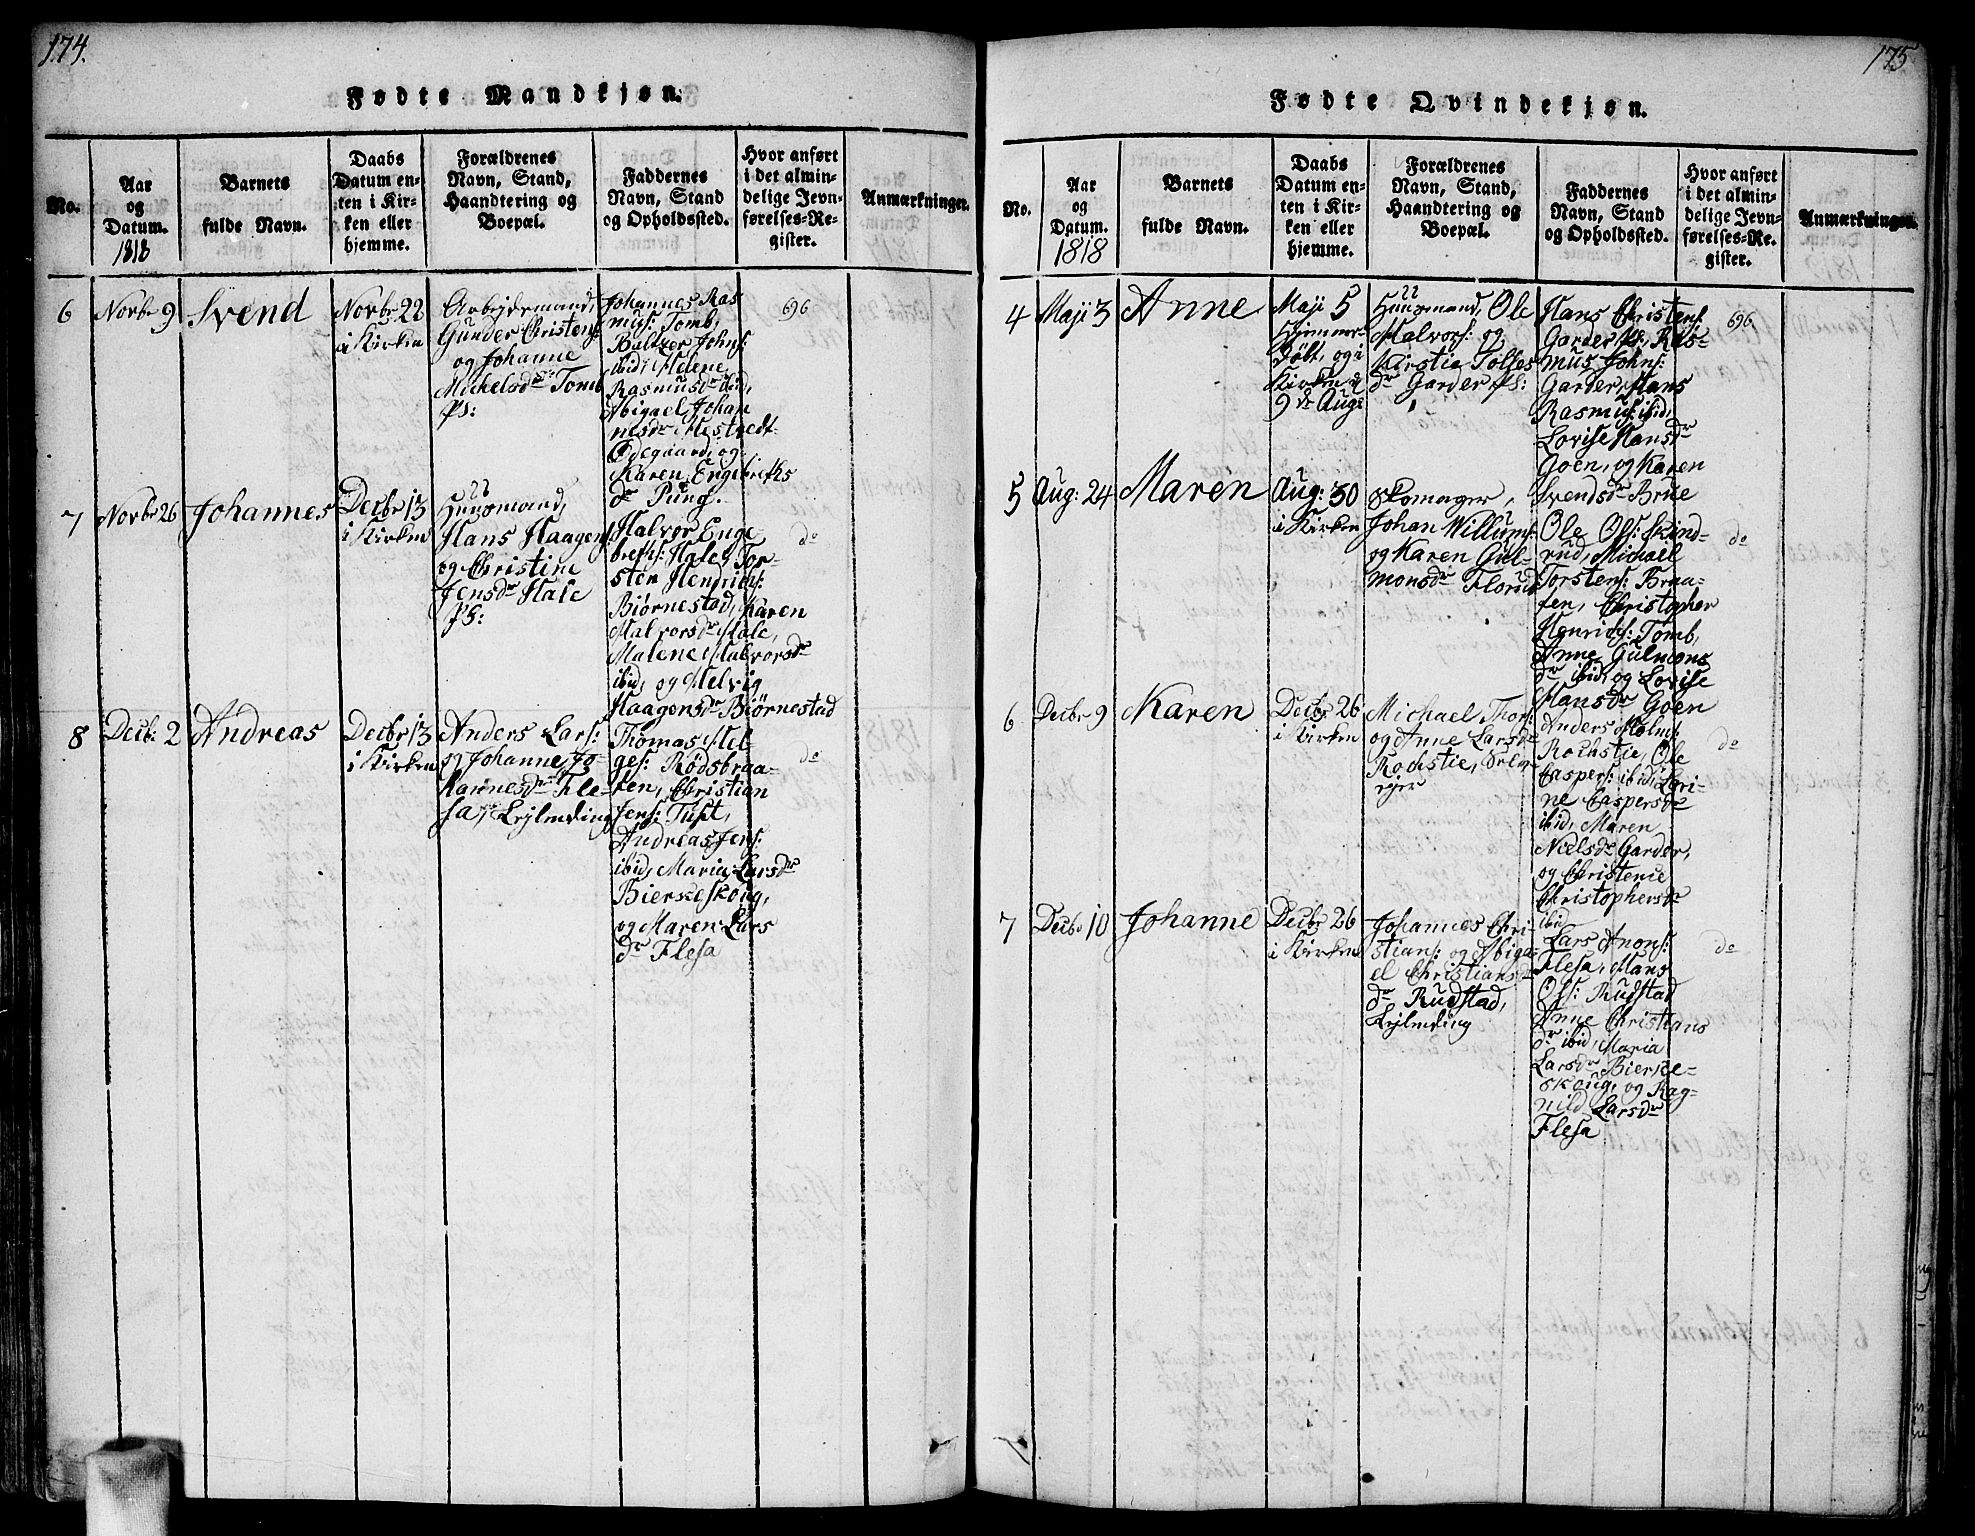 174.
Fødte Mandkjøn.
No.
Aar
og
Datum.
1818
Barnets
fulde Navn.
Daabs
Datum en-
ten i Kir-
ken eller
hjemme.
Forældrenes
Navn, Stand,
Haandtering og
Boepæl.
Faddernes
Navn, Stand
og Opholdssted.
Hvor anført
i det almin-
delige Jevn-
førelses-Re-
gister.
Anmærkninger.
6
Novbr 9
Svend
Novbr 22
i Kirken
Arbejdsmand,
Gunder Christens:
og Johanne
Michelsdr Tomb
Johannes Ras
mus: Tomb,
Baltzer Johns:
ibid, Helene
Rasmusdr ibid,
Abigael Johan
nesdr Mestvedt-
Ødegaard, og
Karen Engebriths
dr Pung.
696
7
Novbr 26
Johannes
Decbr 13
i Kirken
Huusmand,
Hans Haagens:
og Christine
Jensdr Hale
Halvor Enge
breths: Hale, Tor-
sten Hendrichs:
Biørnestad, Karen
Halvorsdr Hale,
Malene Halvorsdr
ibid, og Helvig
Haagensdr Biørnestad
do
8
Decbr 2
Andreas
Decbr 13
i Kirken
Anders Lars:
og Johanne Jo
hannesdr Fle-
sa, Lejlending
Thomas Hel
ges: Rødsbraa-
ten, Christian
Jens: Tust,
Andreas Jens:
ibid, Maria Larsdr
Bierkeskoug,
og Maren Lars
dr Flesa
do
175
Fødte Qvindekjøn.
No.
Aar
og
Datum.
1818
Barnets
fulde Navn.
Daabs
Datum en-
ten i Kir-
ken eller
hjemme.
Forældrenes
Navn, Stand,
Haandtering og
Boepæl.
Faddernes
Navn, Stand
og Opholdssted.
Hvor anført
i det almin-
delige Jevn-
førelses-Re-
gister.
Anmærkninger.
4
Maji 3
Anne
Maji 5
hjemme-
døbt, og i
Kirken d
9 de Aug:
Huusmand, Ole
Halvors: og
Kirstie Tolfes
dr Garder
Hans Christens:
Garder, Ras-
mus Johns:
Garder, Hans
Rasmus: ibid,
Lovise Hansdr
Goen, og Karen
Svendsdr Brue
696
5
Aug: 24
Maren
Aug: 30
i Kirken
Skomager,
Johan Willums:
og Karen Gul-
monsdr Florud
Ole Ols: Skind-
rud, Michael
Torstens: Braa-
ten, Christopher
Henrichs: Tomb,
Anne Gulmons
dr ibid, og Lovise
Hansdr Goen
do
6
Decbr 9
Karen
Decbr 26
i Kirken
Michael Thor:
og Anne Larsdr
Rochstie, Selv-
ejer
Anders Holm:
Rochstie, Ole
Caspers: ibid, Cari-
ne Caspersdr
ibid, Maren
Nielsdr Garder,
og Christence
Christophersdr
ibid
do
7
Decbr 10
Johanne
Decbr 26
i Kirken
Johannes Chri-
stians: og Abiga-
el Christians
dr Rudstad,
Lejlending
Lars Anons:
Flesa, Hans
Ols: Rudstad
Anne Christians
dr ibid, Maria
Larsdr Bierke-
skoug, og Rag-
nild Larsdr
Flesa
do